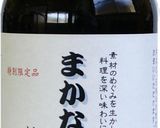 素材のめぐみを生か
料理を深い味わいに
まかな
特別限定品